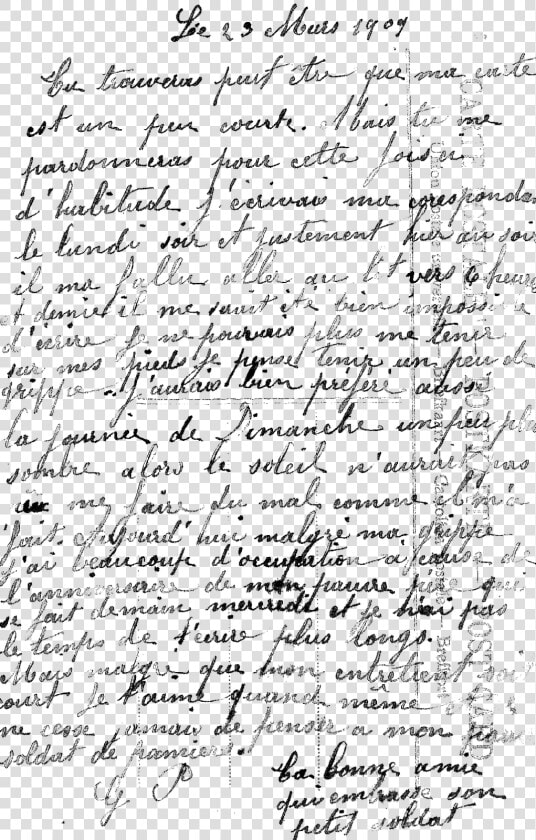 Le 23 Mars 1909
Tu trouveras peut être que ma carte
est un peu courte. Mais tu me
pardonneras pour cette fois ci
d'habitude j'écrivais ma correspondan
le lundi soir et justement hier au soir
il ma fallu aller au lit vers 6 heure
et demie il me serait été bien impossible
d'écrire je ne pouvais plus me tenir
sur mes pieds je pense tenir un peu de
grippe. J'aurais bien préféré aussi
la journée de Dimanche un peu plu
sombre alors le soleil n'aurait pas
me faire du mal comme il m'a
fait. Aujourd'hui malgré ma grippe
j'ai beaucoup d'occupation a cause de
l'anniversaire de mon pauvre père qui
se fait demain mercredi et je n'ai pas
le temps de t'écrire plus longs.
Mais malgré que mon entretient soit
court je t'aime quand même et
ne cesse jamais de penser a mon
soldat de
G P
Ta bonne amie
qui embrasse son
petit soldat
CARTE POSTALE
POSTCARD